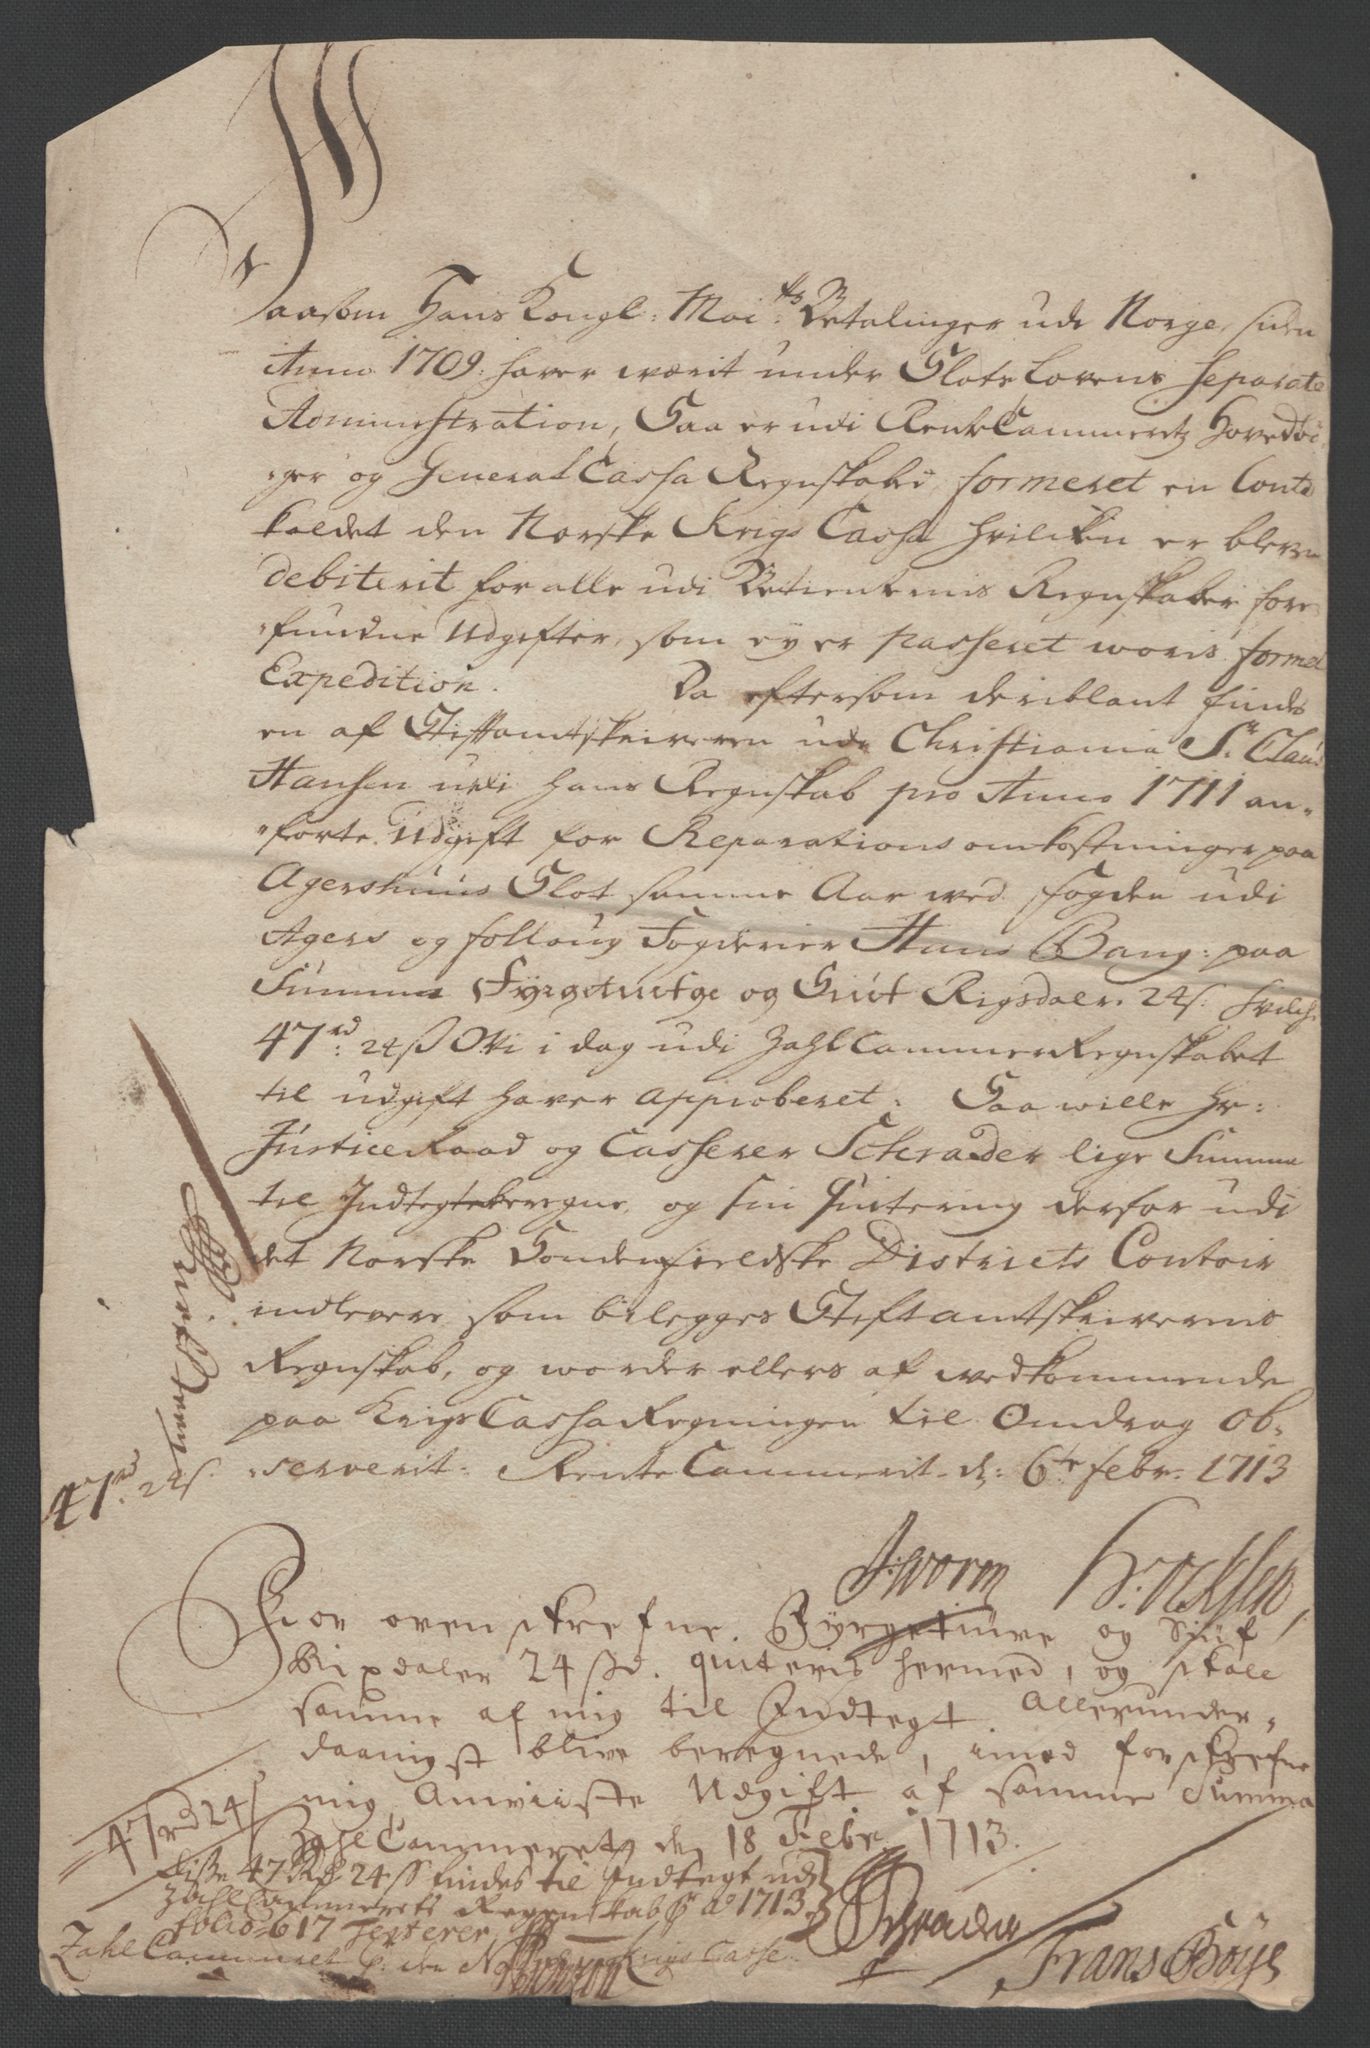 Saasom Hans Kongl: Mai:ts Betalinger udi Norge, siden
Anno 1709: haver wærit under Slots Lovens Separate
Administration, Saa er udi RenteCammeretz Hovedbø-
ger og General Cassa Regnskaber formeret en Conto
kaldet den Norske Krigs Cassa hvilken er bleven
debiterit for alle udi Betienternis Regnskaber fore-
fundne Udgifter, som ey er passeret woris formel
Expedition. Da eftersom deriblant findes
en af Stiftamtskriveren udi Christiania Sr Claus
Hansen udi hans Regnskab pro Anno 1711 an-
førte Udgift for Reparations omkostninger paa
Agershuus Slot samme Aar ved fogden udi
Agers og folloug fogderier Hans Bang: paa
Summa Fyrgetyfge og Siuf Rigsdaler 24 s: hvilche
47rd: 24 ß Wi i dag udi ZahlCammerRegnskabet
til udgift haver approberet: Saa wille Hr:
JusticeRaad og Casserer Schrader lige Summa
til Indtegt beregne, og sin quitering derfor udi
det Norske Søndenfieldske Districts Contoir
indlevere som bilegges Stiftamtskriverens
Regnskab, og worder ellers af vedkommende
paa KrigsCassaRegningen til Omdrag ob-
serverit. RenteCammerit d: 6te febr: 1713
47rd: 24 s.
J: Worm
For ovenskrefne Fyrgetiuve og Siuf
Rixdaler 24 ßd. quiteris hermed, og skall
samme af mig til Indtegt Allerunder-
daanigst blive beregnede, imod forskrefne
mig Anviiste Udgift af samme Summa
ZahlCammeret d. 18 Febr. 1713.
47rd 24 ß
Disse 47 Rd 24 ß findes til Indtegt udi
ZahlCammerets Regenskab pr Ao 1713
folio 617
Schrader
ZahlCammeret C. den Norske Krigs Casse
Frans Böys